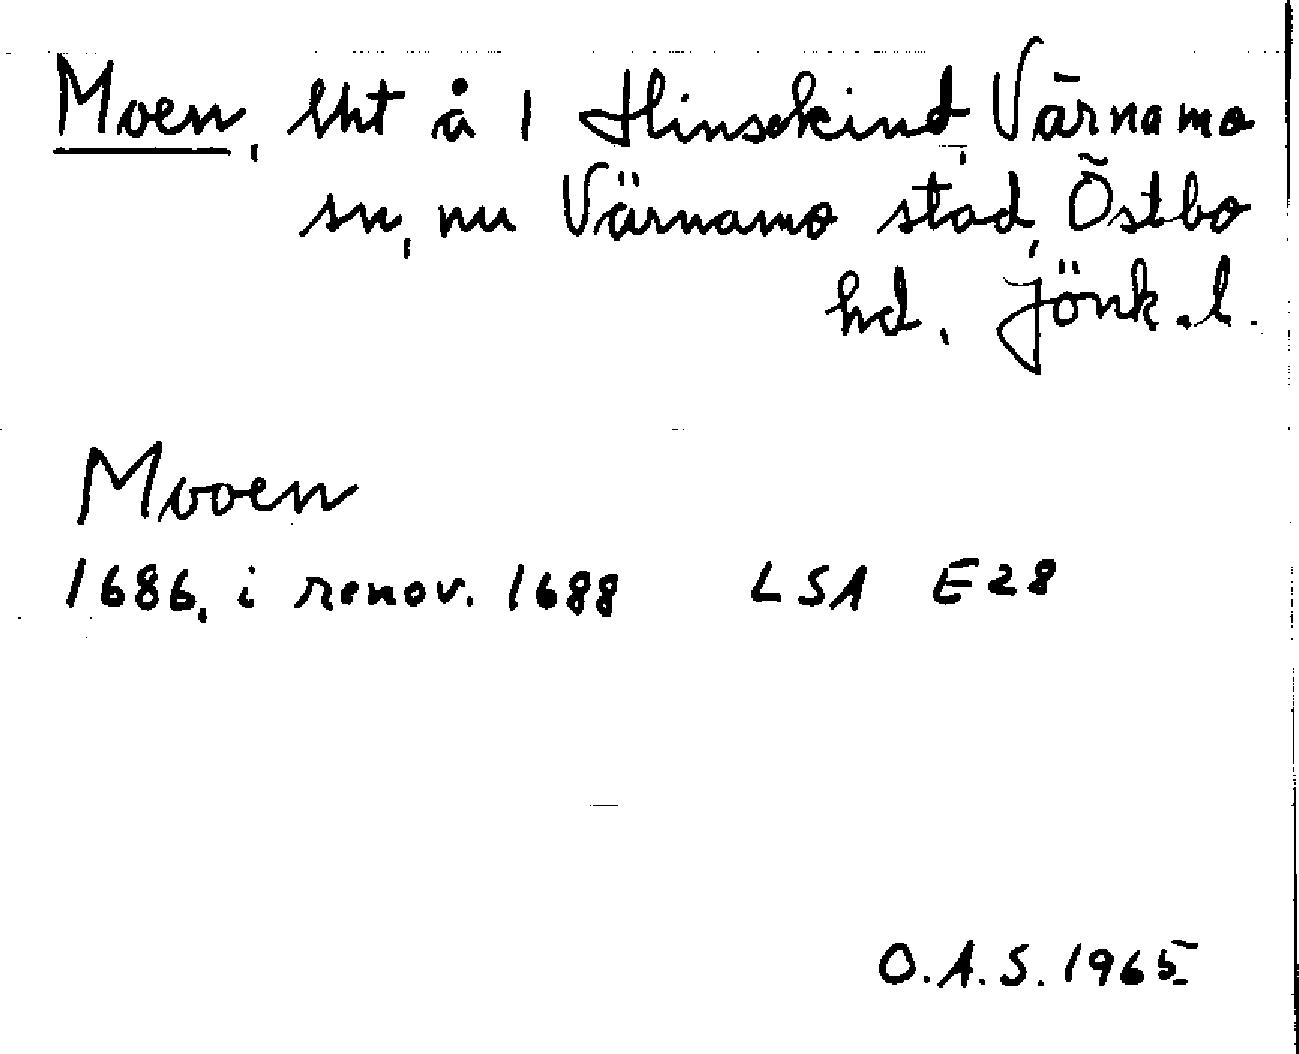 Moen, lht å 1 Hinsekind, Värnamo
sn, nu Värnamo stad, Östbo
hd, Jönk.l.
Mooen
1686, i renov. 1688 LSA E28
O.A.S. 1965